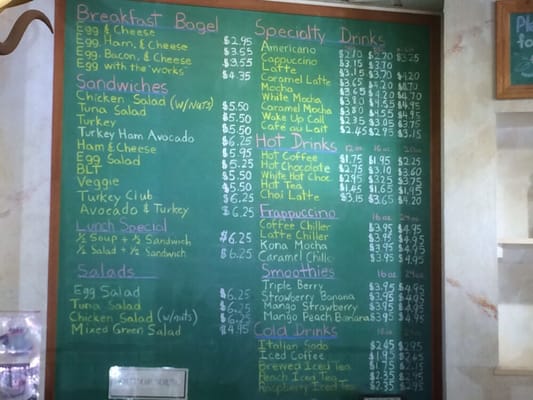 Breakfast Bagel
Egg & Cheese $2.95
Egg, Ham, & Cheese $3.55
Egg, Bacon, & Cheese $3.55
Egg with the "works" $4.35
Sandwiches
Chicken Salad (w/nuts) $5.50
Tuna Salad $5.50
Turkey $5.50
Turkey Ham Avocado $6.25
Ham & Cheese $5.95
Egg Salad $5.25
BLT $5.50
Veggie $5.50
Turkey Club $6.25
Avocado & Turkey $6.25
Lunch Special
½ Soup + ½ Sandwich $6.25
½ Salad + ½ Sandwich $6.25
Salads
Egg Salad $6.25
Tuna Salad $6.25
Chicken Salad (w/nuts) $6.25
Mixed Green Salad $4.95
Specialty Drinks
Americano $2.70 $3.25
Cappuccino $3.15 $3.70
Latte $3.15 $3.70 $4.20
Caramel Latte $3.65 $4.20 $4.70
Mocha $3.65 $4.20 $4.70
White Mocha $4.55 $4.95
Caramel Mocha $4.55 $4.95
Wake Up Call $2.35 $3.05 $3.75
Cafe au Lait $2.45 $2.95 $3.15
Hot Drinks 12 oz. 16 oz. 20 oz.
Hot Coffee $1.75 $1.95 $2.25
Hot Chocolate $2.75 $3.10 $3.60
White Hot Choc. $2.95 $3.75
Hot Tea $1.45 $1.65 $1.95
Chai Latte $3.15 $3.65 $4.20
Frappuccino 16 oz. 24 oz.
Coffee Chiller $3.95 $4.95
Latte Chiller $3.95 $4.95
Kona Mocha $3.95 $4.95
Caramel Chiller $3.95 $4.95
Smoothies 16 oz. 24 oz.
Triple Berry $3.95 $4.95
Strawberry Banana $3.95 $4.95
Mango Strawberry $3.95 $4.95
Mango Peach Banana $3.95 $4.95
Cold Drinks
Italian Soda $2.45 $2.95
Iced Coffee $1.95 $2.65
Brewed Iced Tea $1.75 $2.15
Peach Iced Tea $2.35 $2.95
Raspberry Iced Tea $2.35 $2.95